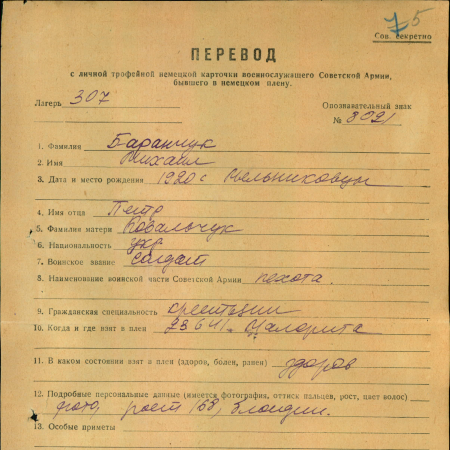 75
Сов. секретно
ПЕРЕВОД
с личной трофейной немецкой карточки военнослужащего Советской Армии,
бывшего в немецком плену.
Лагерь 307
Опознавательный знак
№ 8021
1. Фамилия Баранчук
2. Имя Михаил
3. Дата и место рождения 1920 с Мельниковцы
4. Имя отца Петр
5. Фамилия матери Ковальчук
6. Национальность укр
7. Воинское звание солдат
8. Наименование воинской части Советской Армии пехота.
9. Гражданская специальность
10. Когда и где взят в плен 23 6 41 Малорита
11. В каком состоянии взят в плен (здоров, болен, ранен) здоров
12. Подробные персональные данные (имеется фотография, оттиск пальцев, рост, цвет волос)
фото, рост 168, блондин.
13. Особые приметы